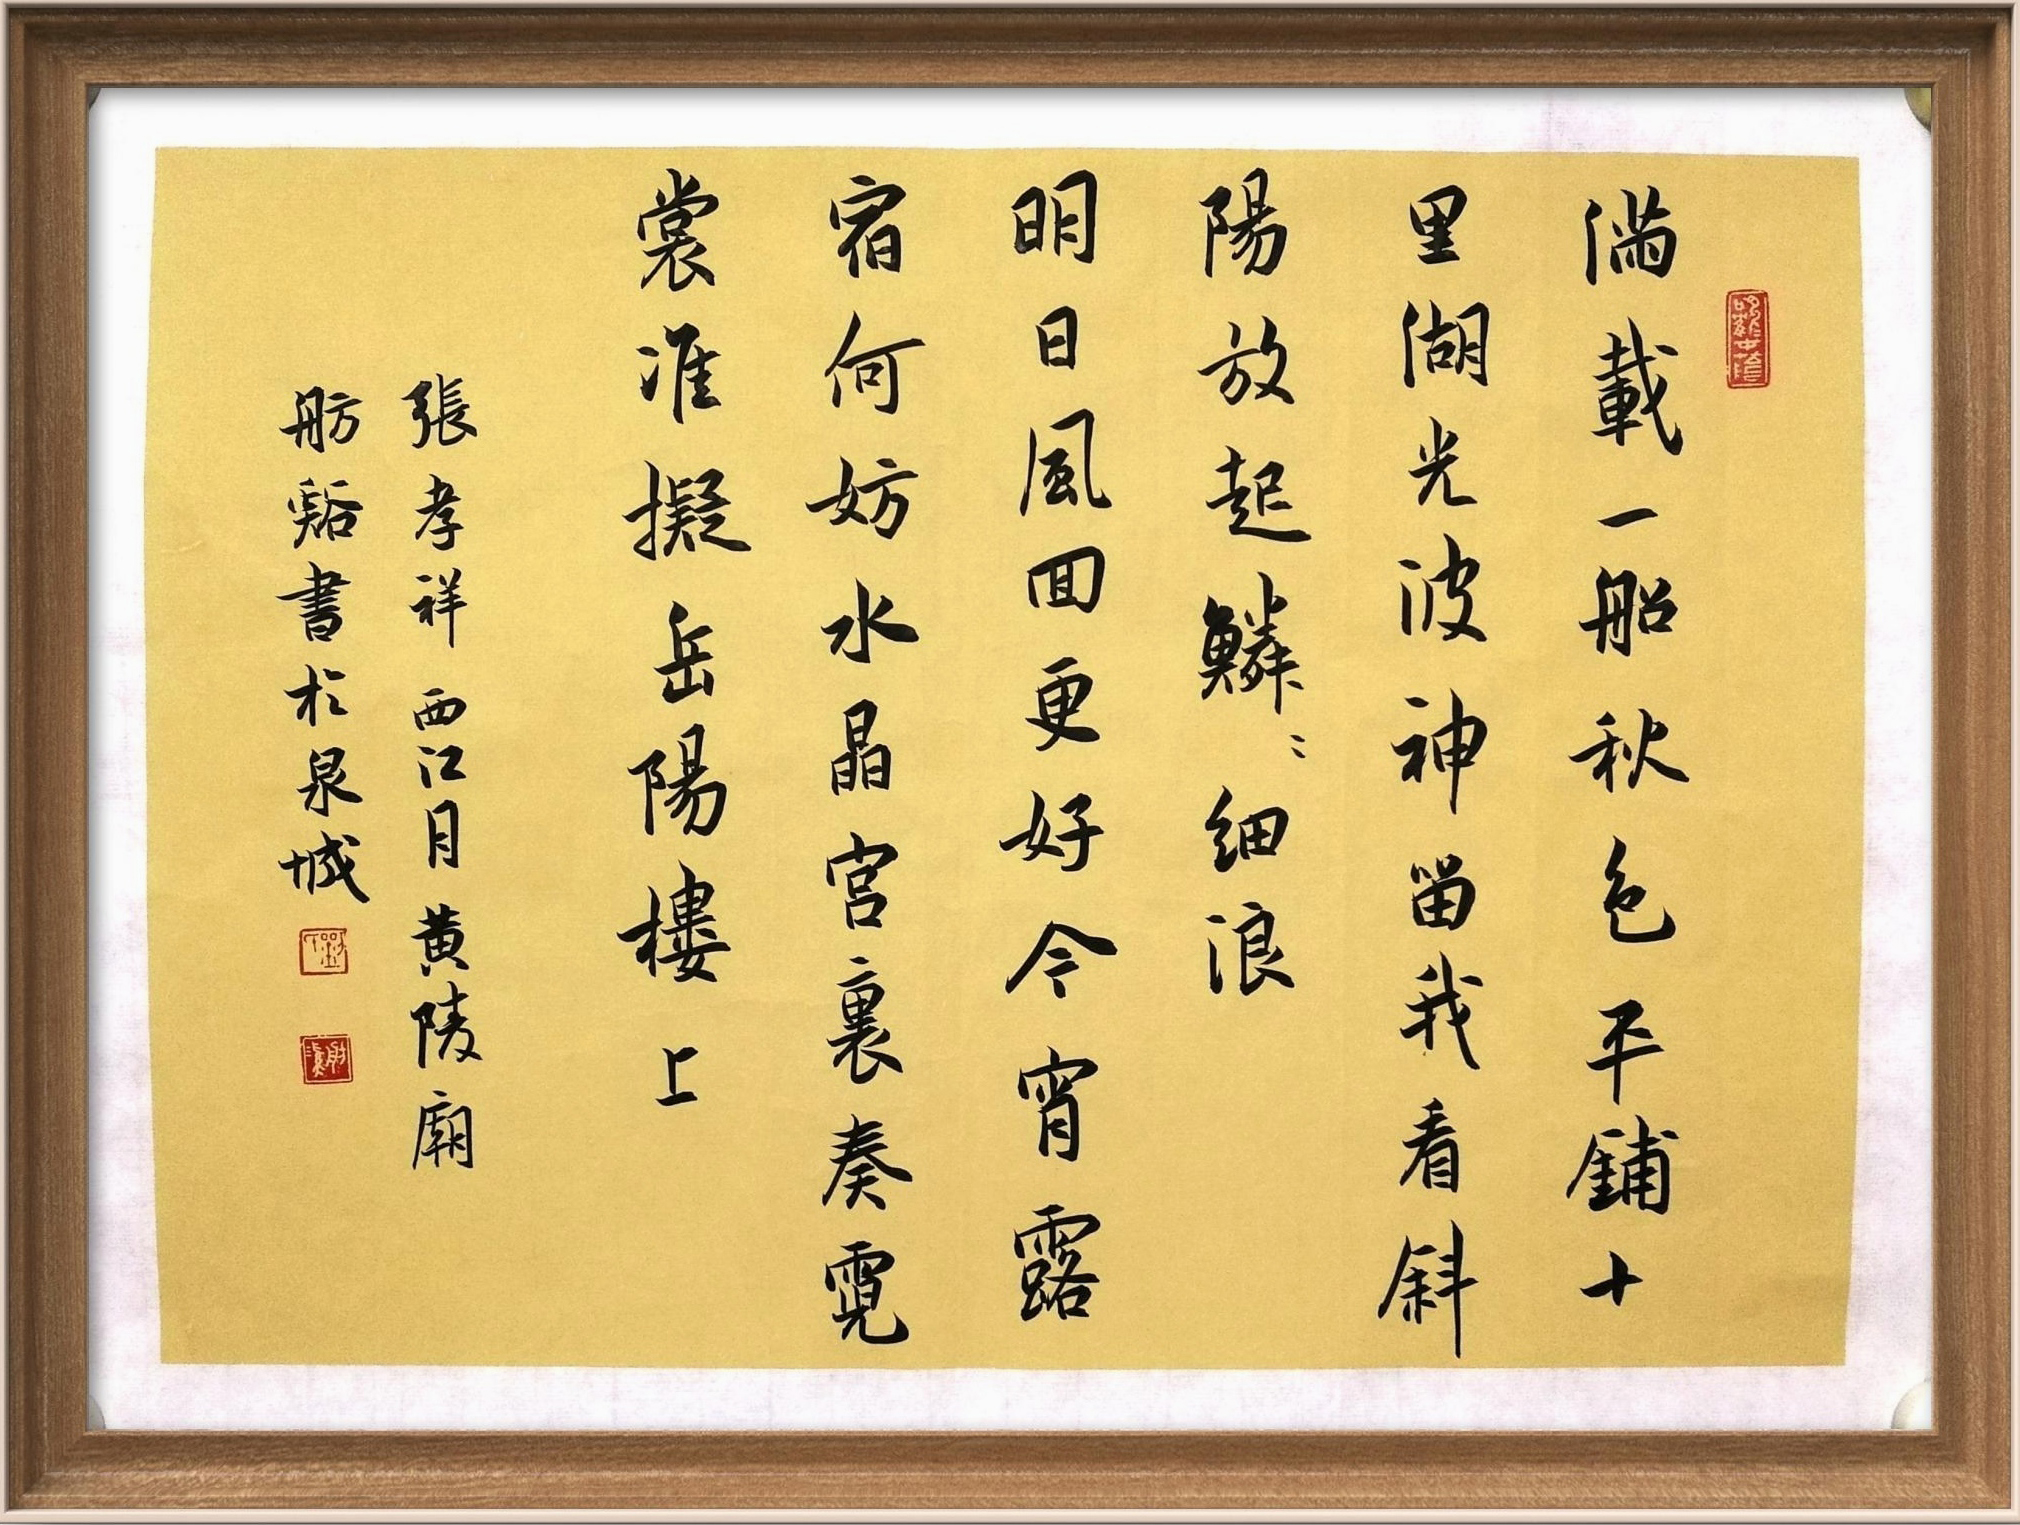 滿載一船秋色平鋪十
里湖光波神留我看斜
陽放起鱗〻細浪
明日風回更好今宵露
宿何妨水晶宮裏奏霓
裳准擬岳陽樓上
張孝祥西江月黄陵廟
舫谿書於泉城